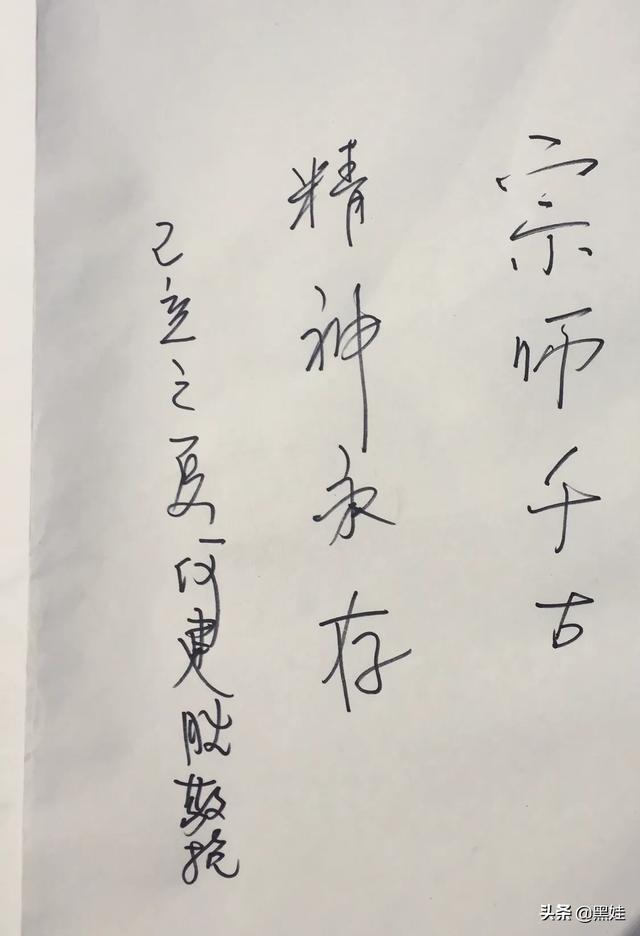 宗师千古
精神永存
己亥之夏何建胜敬挽
头条 @黑娃